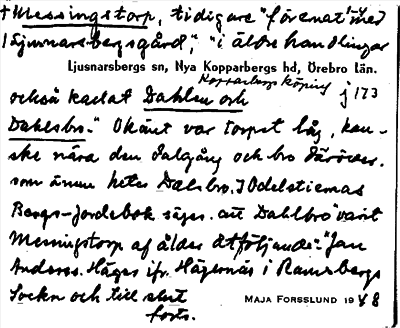 † Messingstorp, tidigare "förenat 1-4 med
Ljusnarsbergsgård", "i äldre handlingar
Ljusnarsbergs sn, Nya Kopparbergs hd, Örebro län.
Kopparbergs köping
också kallat Dahlen och
j 173
Dahlsbro." Okänt var torpet låg, kan-
ske nära den dalgång och bro däröver,
som ännu heter Dalsbro. I Odelstiernas
Bergs-Jordebok säges. att Dahlbro "varit
Messingstorp af ålder åtföljande": "Jan
Anderss. Häger ifr. Hägernäs i Ramsbergs
Sockn och till slut
MAJA FORSSLUND 1948
forts.